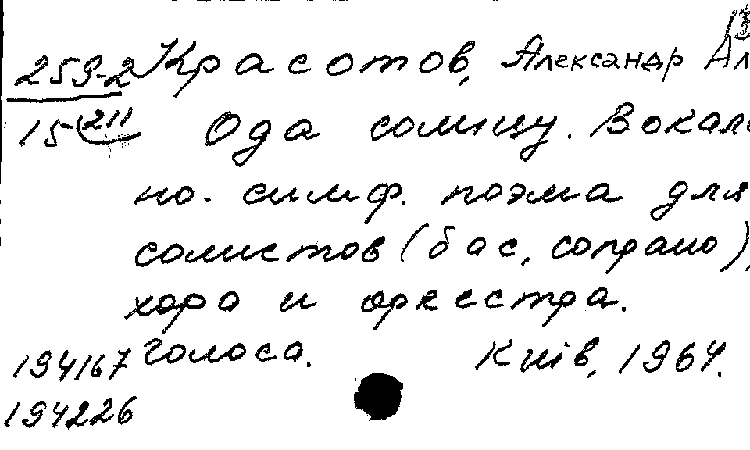 253-2 Красотов, Александр Ал
15(211 Ода солнцу. Вокаль
но. симф. поэма для
солистов (бас, сопрано),
хора и оркестра.
194167 Голоса. Київ, 1964.
194226